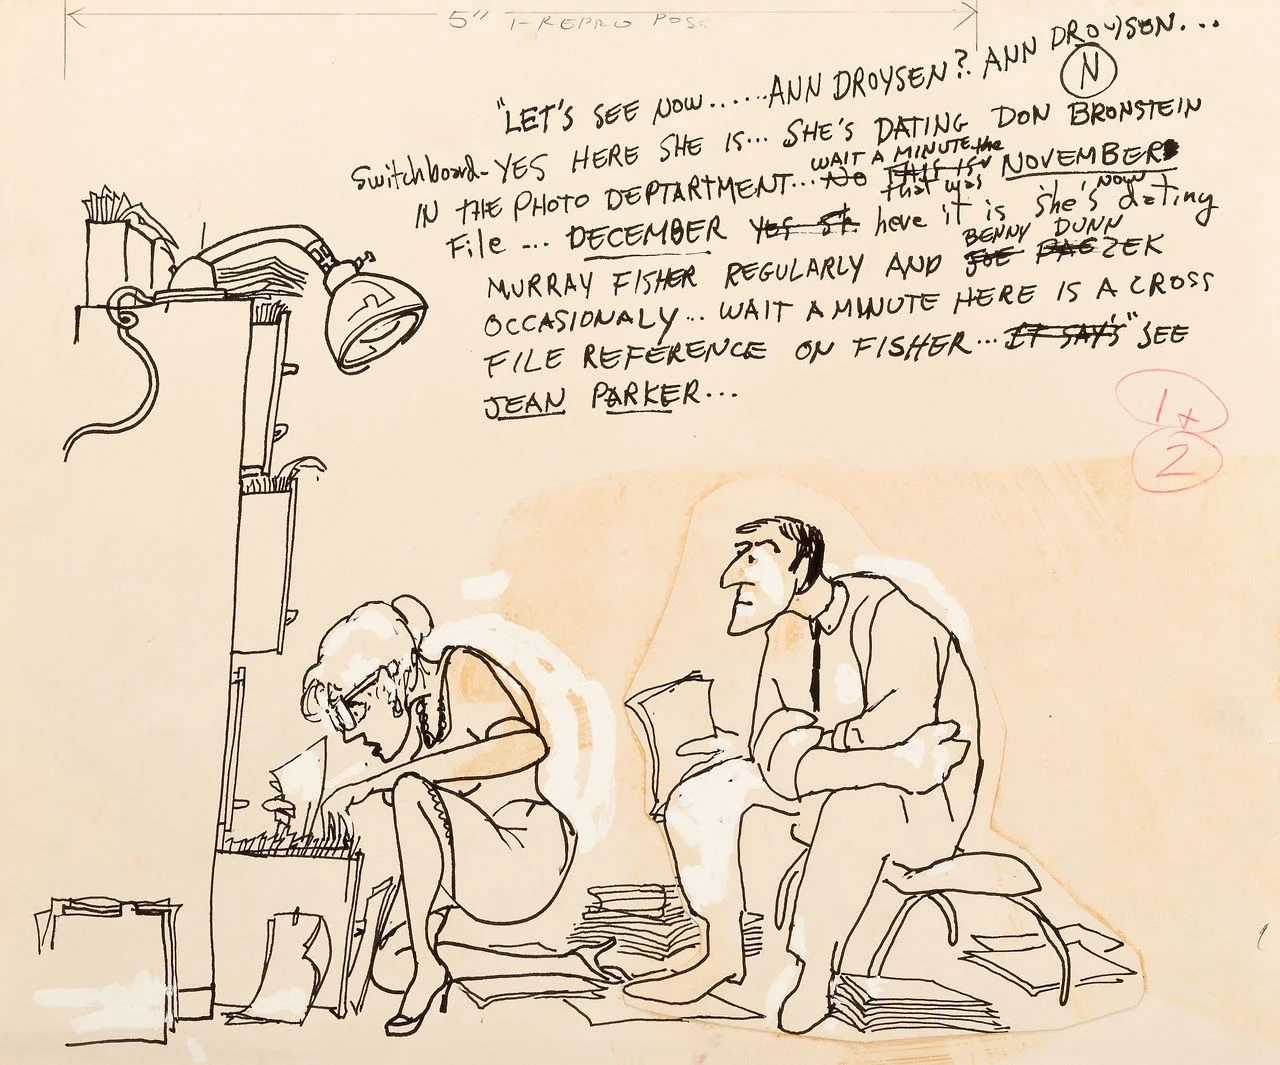 5" 1-REPRO POS.
"LET'S SEE NOW......ANN DROYSEN? ANN DROYSON...
N
Switchboard-YES HERE SHE IS... SHE'S DATING DON BRONSTEIN
WAIT A MINUTE the
IN THE PHOTO DEPTARTMENT... NO THIS IS NOVEMBER
that was NOW
File ... DECEMBER YES here it is she's dating
BENNY DUNN
MURRAY FISHER REGULARLY AND JOE PACZEK
OCCASIONALY... WAIT A MINUTE HERE IS A CROSS
FILE REFERENCE ON FISHER... IT SAY'S "SEE
JEAN PARKER...
1 +
2